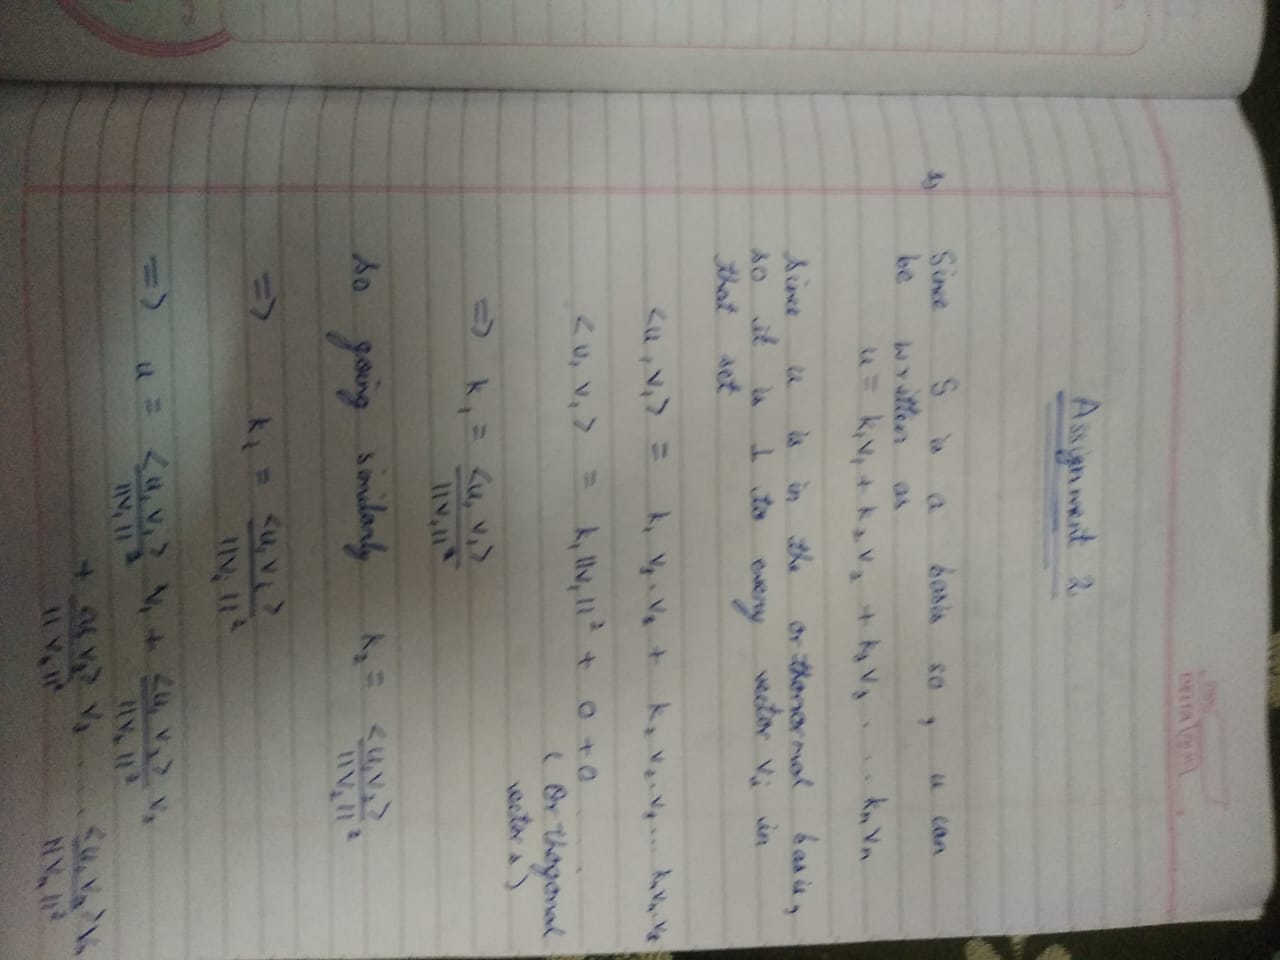 DELTA
Assignment 2
1) Since S is a basis so, u can
be written as
u = k₁v₁ + k₂v₂ + k₃v₃ . . . kₙvₙ
Since u is in the orthonormal basis,
so it is ⊥ to every vector vᵢ in
that set
<u, v₁> =
<u, v₁> = k₁||v₁||² + 0 + 0 . . .
( Orthogonal
vectors )
=> k₁ = <u, v₁> / ||v₁||²
so going similarly k₂ = <u, v₂> / ||v₂||²
=> kᵢ = <u, vᵢ> / ||vᵢ||²
=> u = <u, v₁> / ||v₁||² v₁ + <u, v₂> / ||v₂||² v₂
+ <u, v₃> / ||v₃||² v₃ . . . <u, vₙ> / ||vₙ||² vₙ